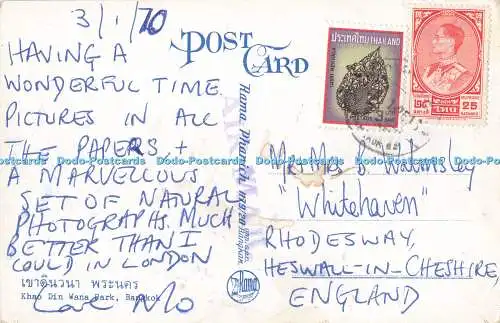 3/1/70
HAVING A
WONDERFUL TIME
PICTURES IN ALL
THE PAPERS, +
A MARVELLOUS
SET OF NATURAL
PHOTOGRAPHS. MUCH
BETTER THAN I
COULD IN LONDON
เขาดินวนา พระนคร
Khao Din Wana Park, Bangkok
Love Mo
POST CARD
AIR MAIL
Phama
ประเทศไทย THAILAND
25
Mr. Mrs D. Walmsley
"Whitehaven"
RHODESWAY,
HESWALL-IN-CHESHIRE,
ENGLAND
Dodo-Postcards Dodo-Postcards Dodo-Postcards Dodo-Postcards Dodo-Postcards